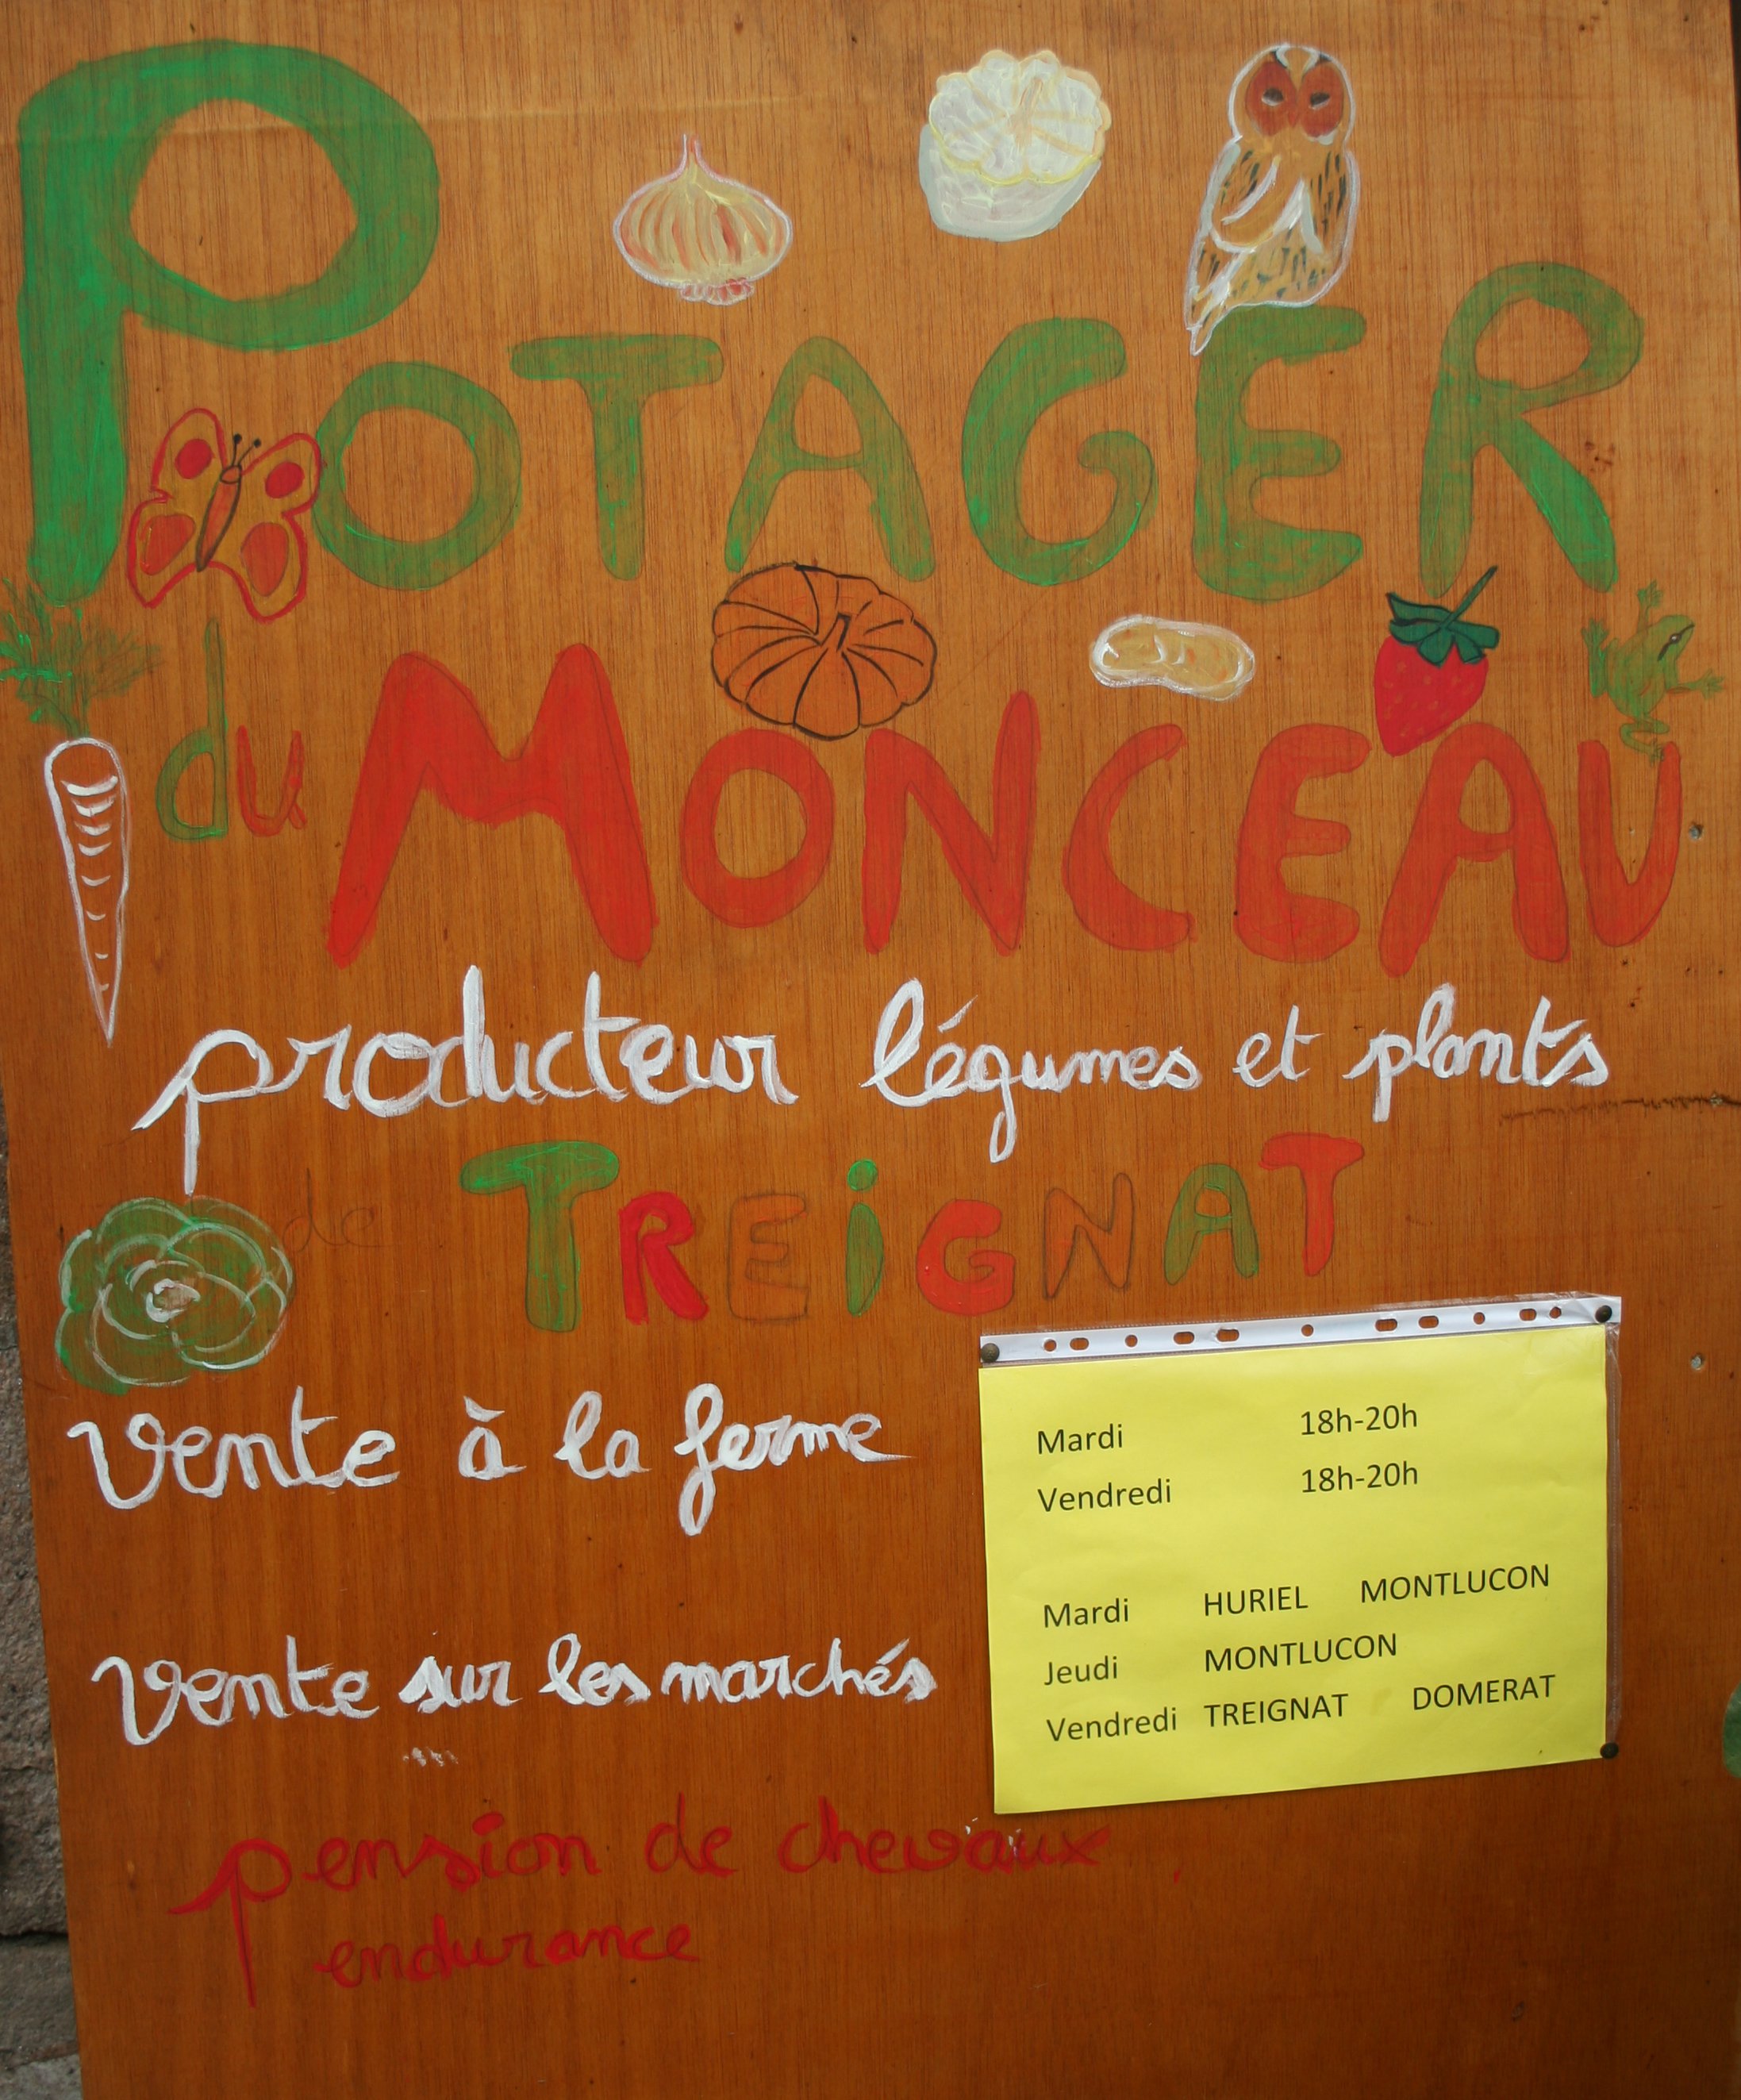 POTAGER
du MONCEAU
producteur légumes et plants
de TREiGNAT
vente à la ferme
Mardi 18h-20h
Vendredi 18h-20h
vente sur les marchés
Mardi HURIEL MONTLUCON
Jeudi MONTLUCON
Vendredi TREIGNAT DOMERAT
pension de chevaux
endurance